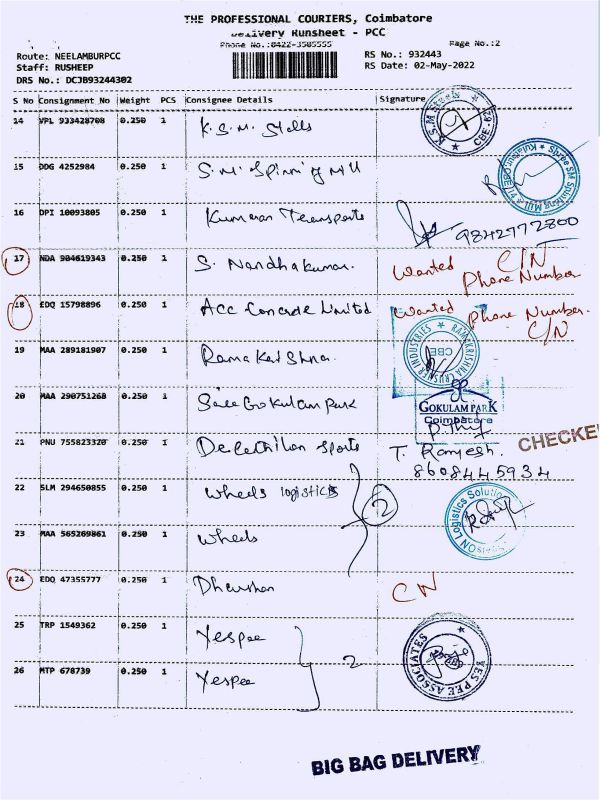 THE PROFESSIONAL COURIERS, Coimbatore
Delivery Runsheet - PCC
Phone No.:0422-3505555 Page No.:2
Route: NEELAMBURPCC RS No.: 932443
Staff: RUSHEEP RS Date: 02-May-2022
DRS No.: DCJB93244302
S No Consignment No Weight PCS Consignee Details Signature
14 VPL 933428708 0.250 1 K.S.M. Stells
15 DDG 4252984 0.250 1 S.M. Spinning Mill
16 DPI 10093805 0.250 1 Kumaran Transports 9842772800
17 NDA 904619343 0.250 1 S. Nandhakumar. Wanted C/N Phone Number
18 EDQ 15798896 0.250 1 Acc Concrete Limited Wanted Phone Number. C/N
19 MAA 289181907 0.250 1 Ramakrishna. RAMAKRISHNA CRUSHER INDUSTRIES CBE
20 MAA 290751268 0.250 1 Sree Gokulam Park GOKULAM PARK
Coimbatore
21 PNU 755823320 0.250 1 Decathlon Sports T. Ramesh. CHECKE
8608445934
22 SLM 294650855 0.250 1 Wheels logistics 2 SON Logistics Solution
23 MAA 565209861 0.250 1 Wheels
24 EDQ 47355777 0.250 1 Dharshan CN
25 TRP 1549362 0.250 1 Yespee 2 YES PEE ASSOCIATES
26 MTP 678739 0.250 1 Yespee
BIG BAG DELIVERY